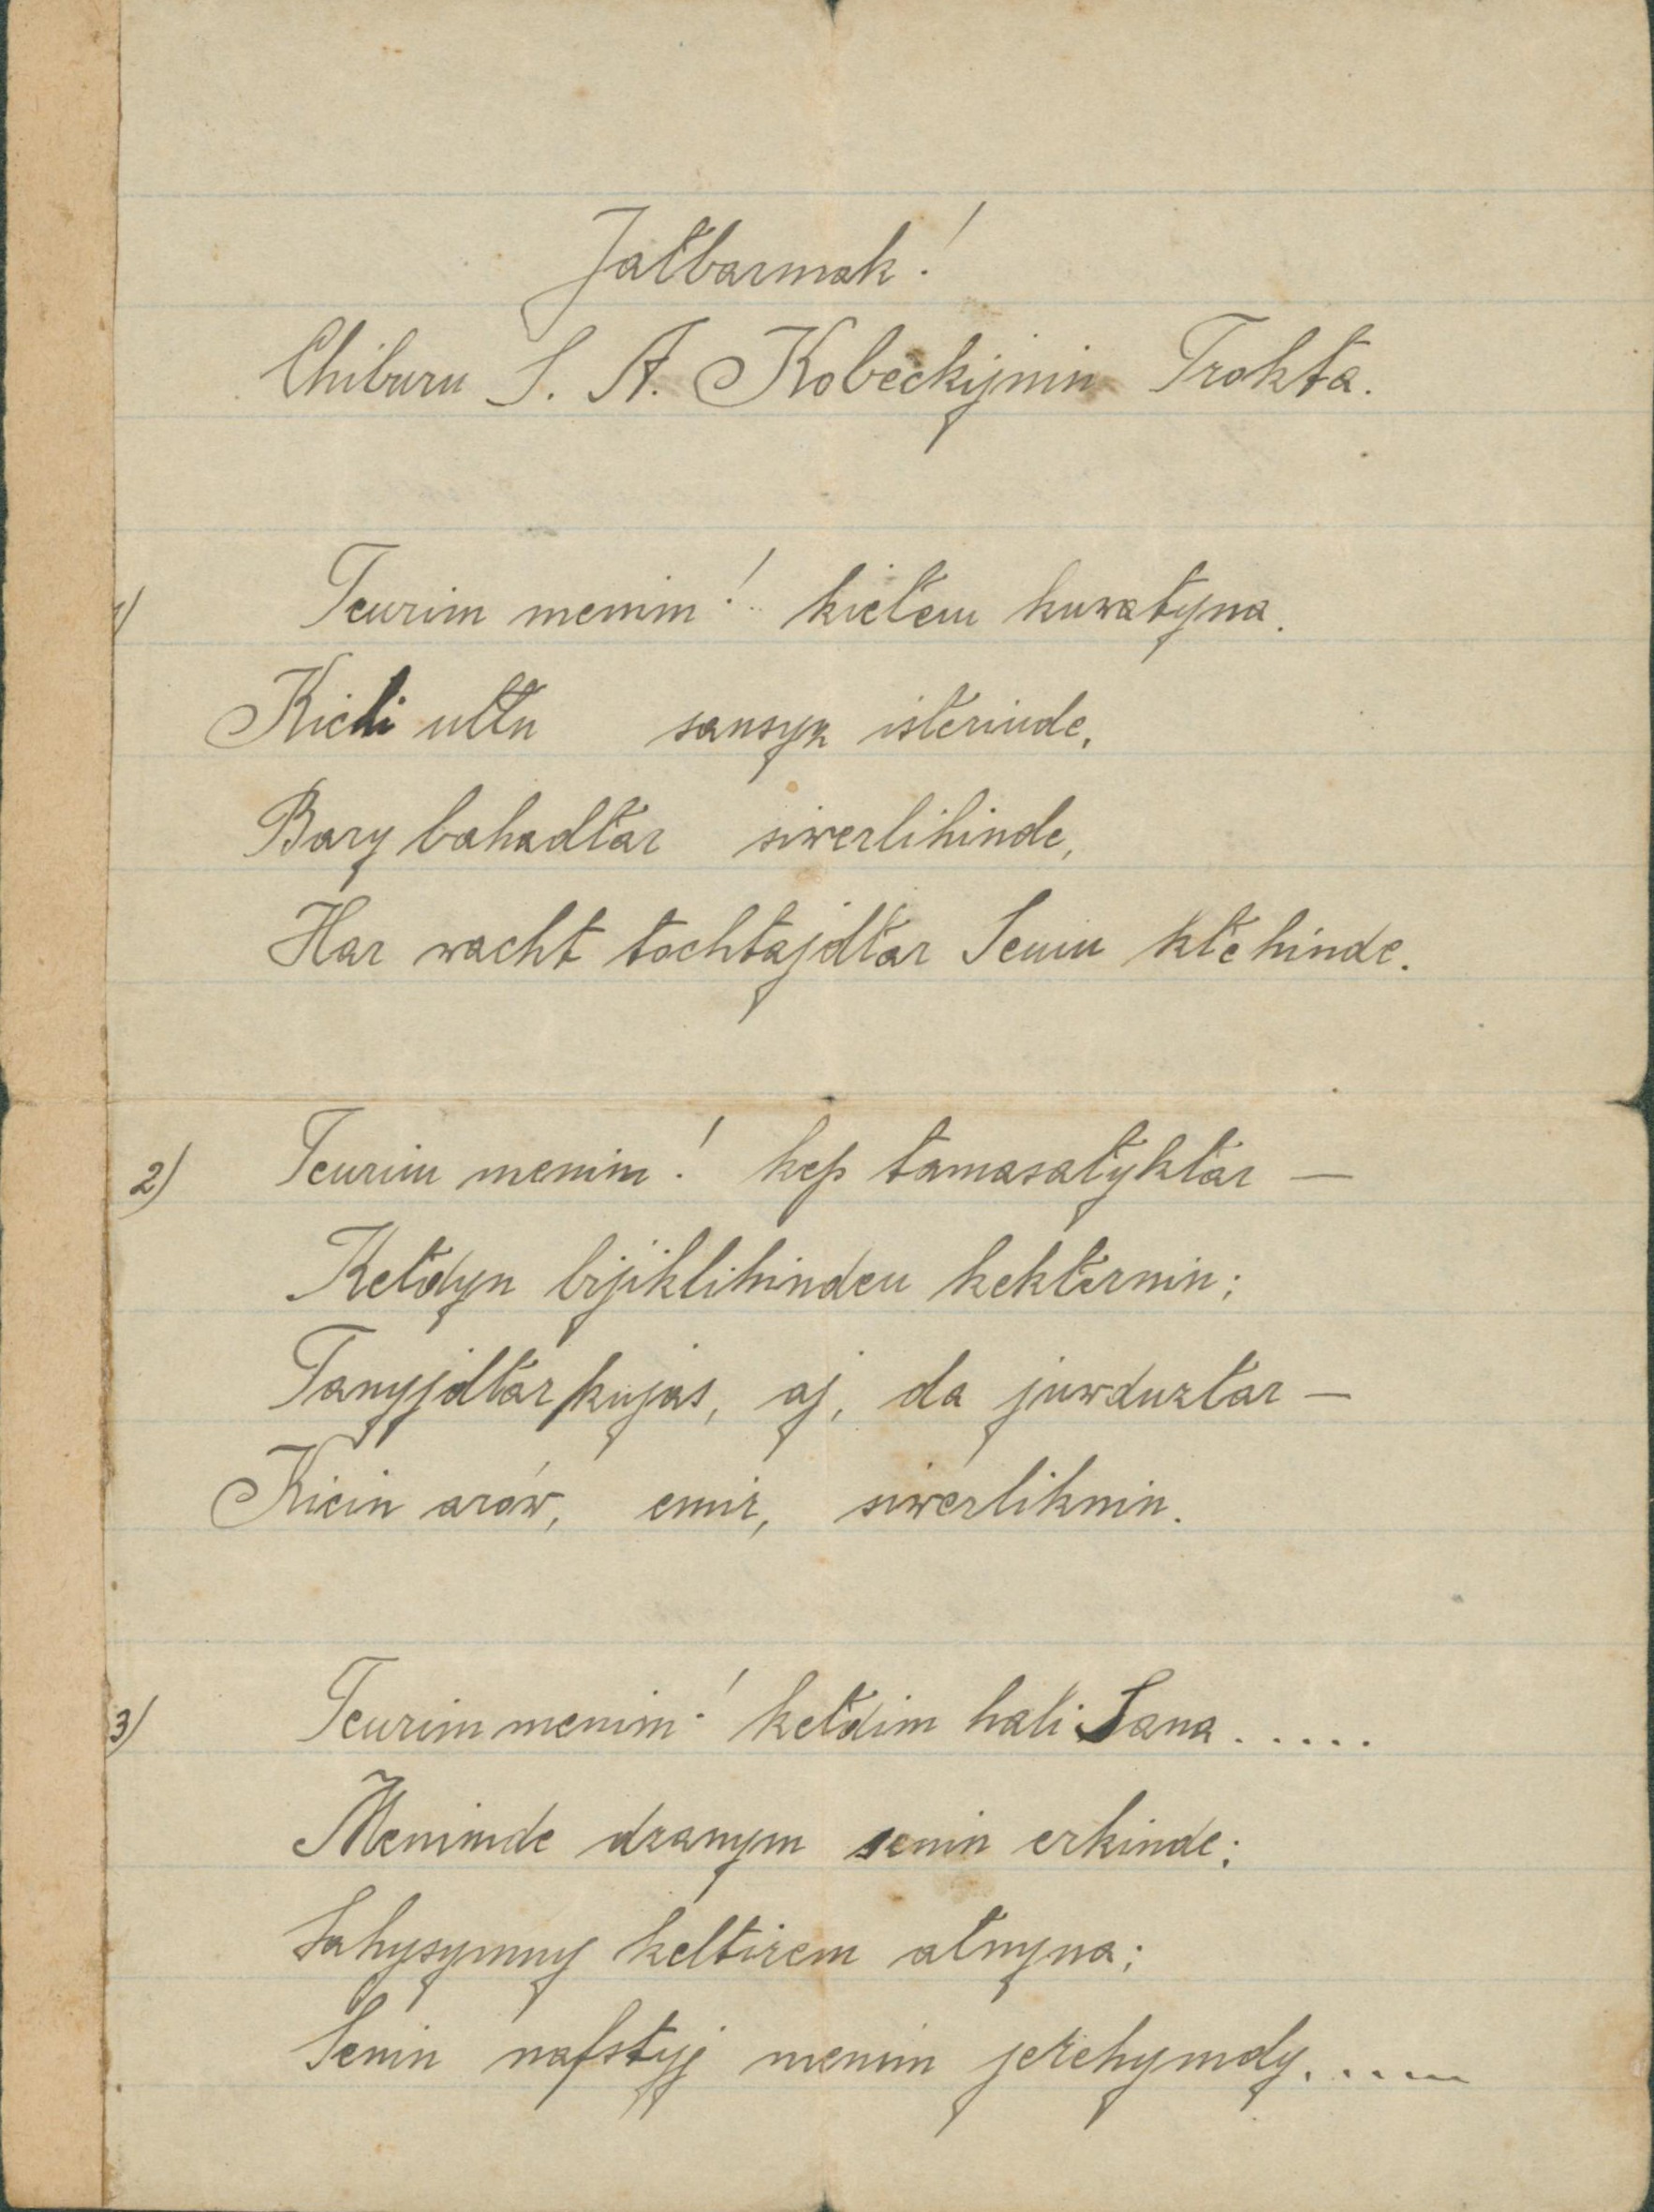 Jałbarmak!
Chiburu S. A. Kobeckijnin Trokta.
1) Teurim menim! kietem kuwatyna.
Kicli ułłu sansyz isłerinde,
Bary bahadłar siwerlihinde,
Har wacht tochtajdłar Senin kłehinde.
2) Teurim menim! kep tamasałykłar —
Kełdyn bijiklihinden kekłernin;
Tanyjdłar kujas, aj, da juwduzłar —
Kicin arów, emir, siwerliknin.
3) Teurim menim! kełdim hali Sana . . . . .
Meninde dzanym senin erkinde;
Sahysymny keltirem ałnyna;
Senin nafstyj menim jerehymdy. . . . .